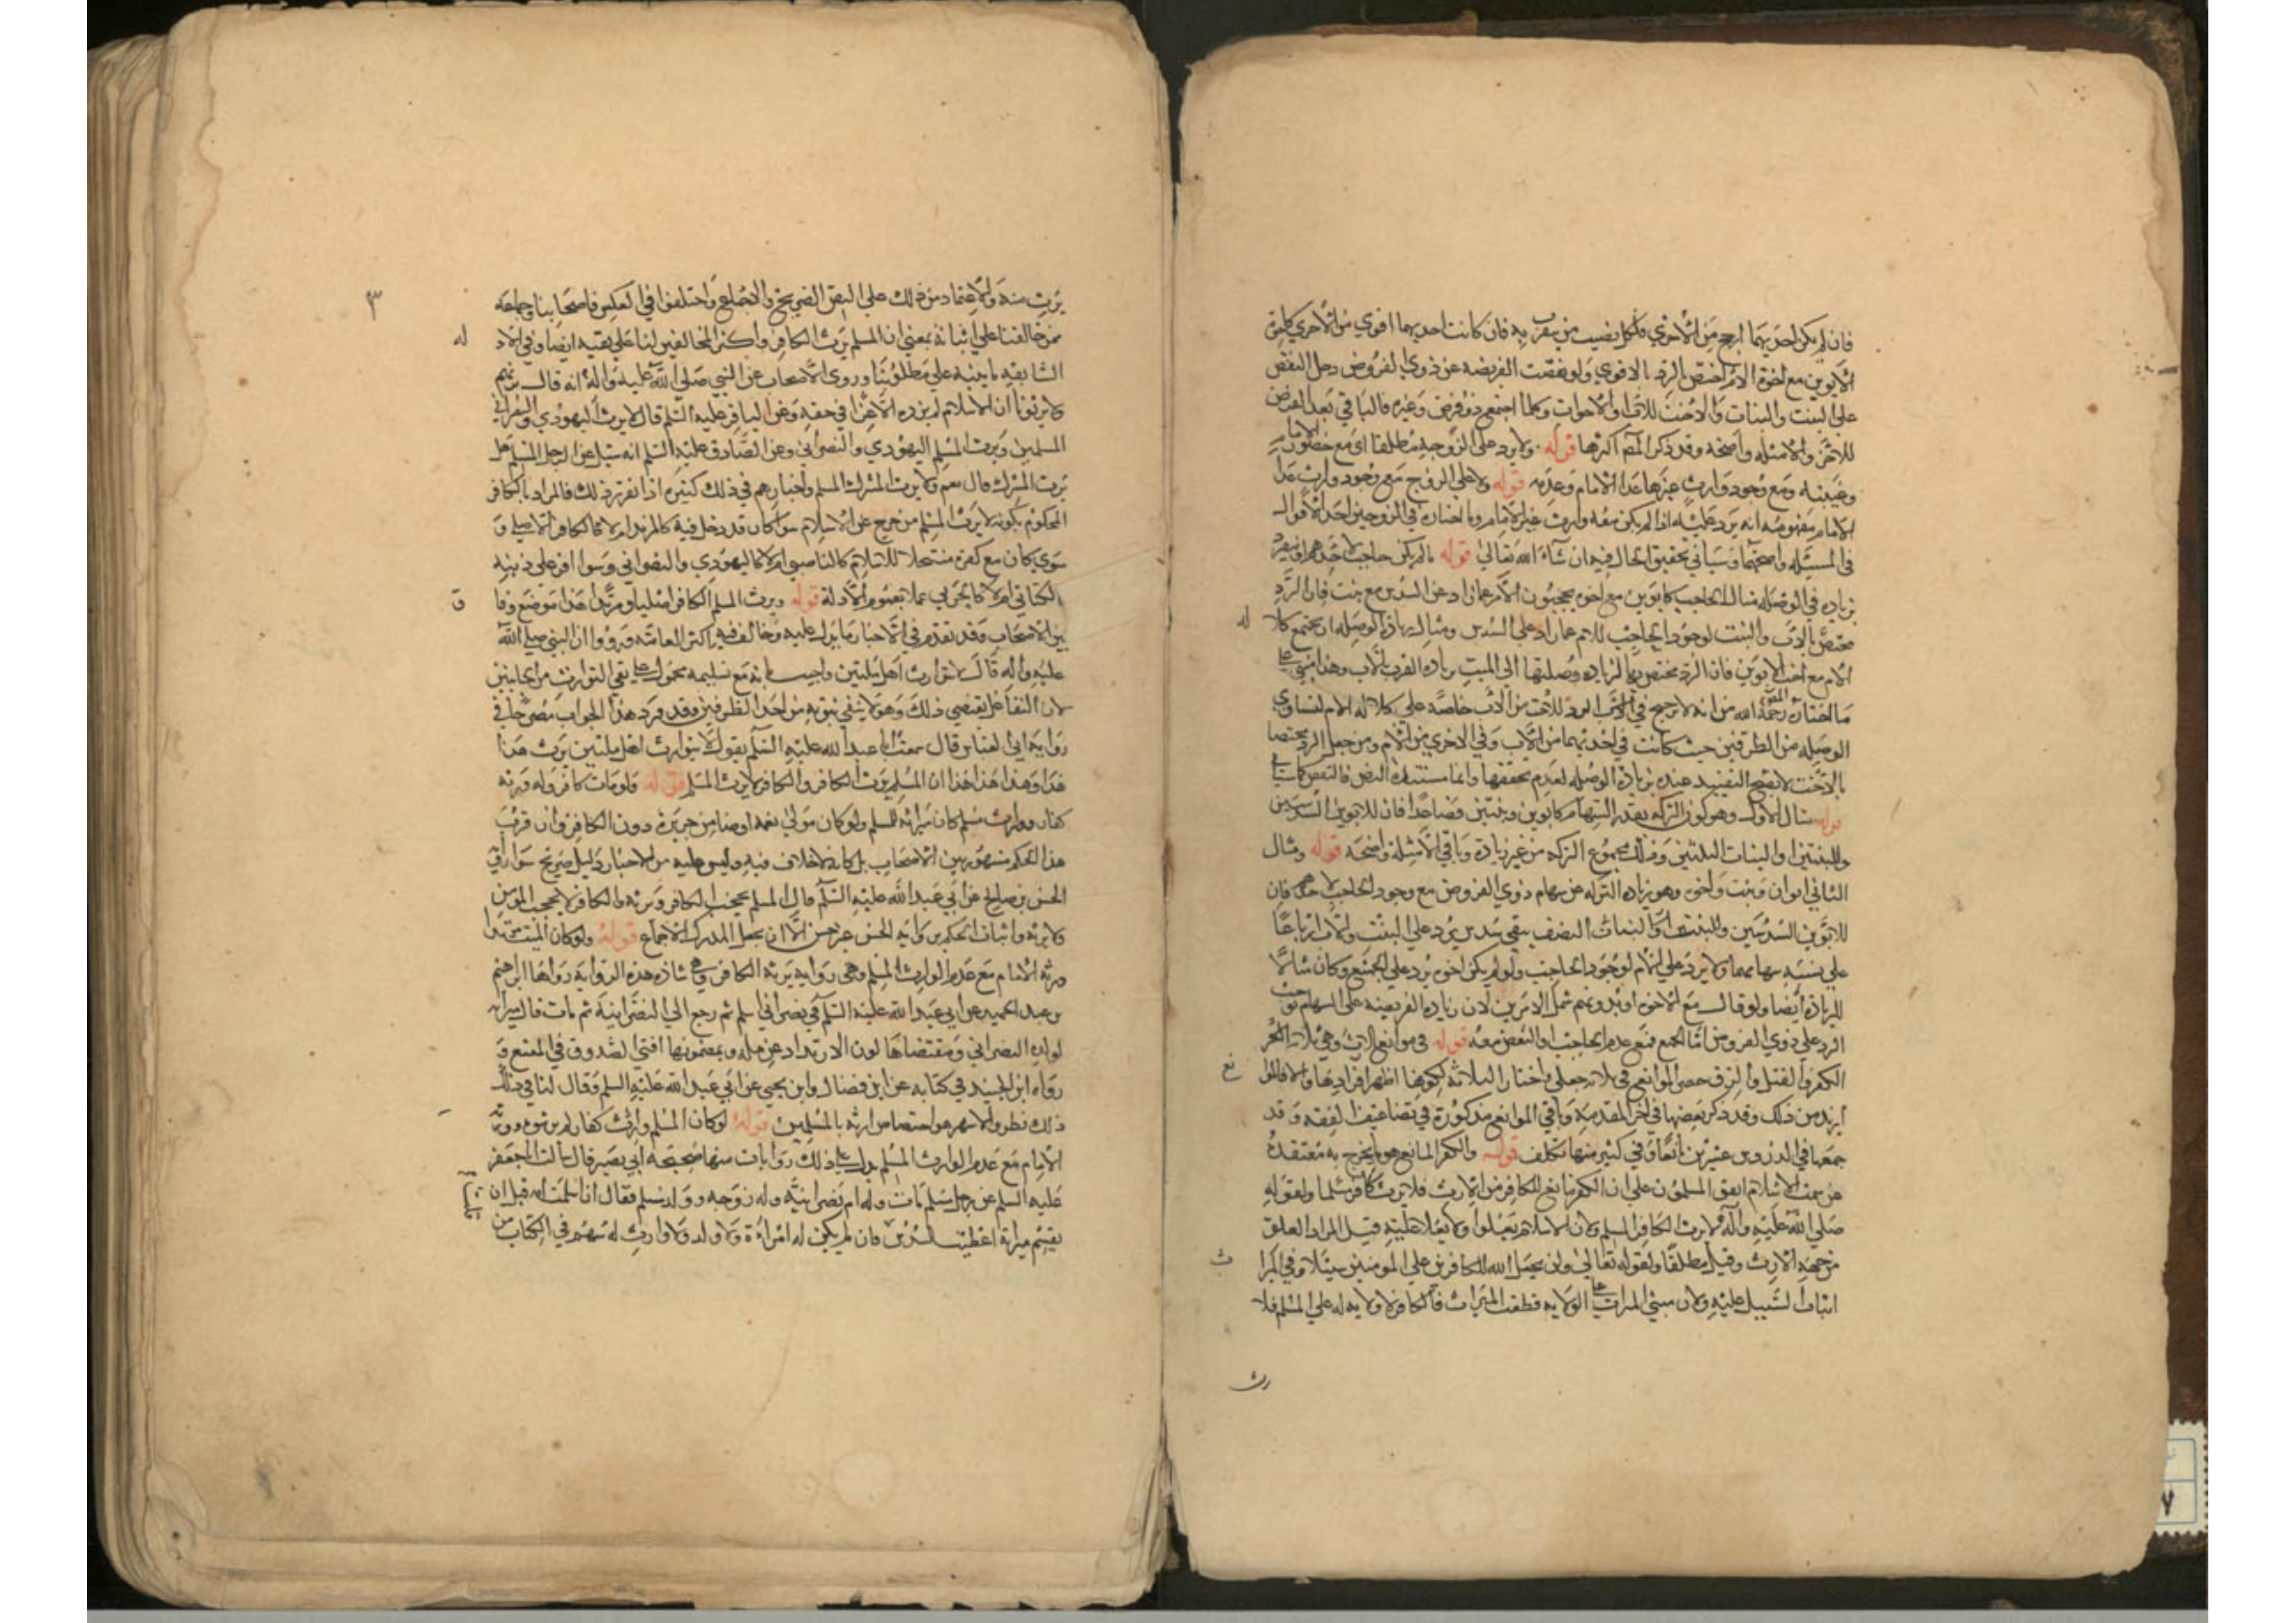 فان لم يكن احديهما ارجح من الاخري فلكل نصيب من يتقرب به فان كانت احديهما اقوي من الاخري كاخوة
الابوين مع اخوة الام اختص الرد بالاقوي ولو نقصت الفريضه عن ذوي الفروض دخل النقص
علي البنت والبنات والاخت للاب او الاخوات وكلما اجتمع ذو فرض وغيره فالباقي بعد الفرض
للاخر والامثله واضحه وقد ذكر المص اكثرها قوله ولا يرد علي الزوجه مطلقا اي مع حضور الامام
وغيبته ومع وجود وارث غيرها عدا الامام وعدمه قوله ولا علي الزوج مع وجود وارث عدا
الامام مفهومه انه يرد عليه اذا لم يكن معه وارث غير الامام وما اختاره في الزوجين احد الاقوال
في المسئله واصحهما وسياتي تحقيق الحال فيه ان شاء الله تعالي قوله مالم يكن حاجب لاحدهم او ينفرد
بزياده في الوصله مثال الحاجب كابوين مع اخوه يحجبون الام عما زاد عن السدس مع بنت فان الرد
مختص بالاب والبنت لوجود الحاجب للام عما زاد علي السدس ومثال زيادة الوصله ان يجتمع كلالة
الام مع اخت الابوين فان الرد مختص بها لزياده وصلتها الي الميت بزياده القرب بالاب وهذا مبني علي
ما اختاره المص رحمه الله من انه لا ترجيح في الرد للاخت من الاب خاصه علي كلاله الام لتساوي
الوصله من الطرفين حيث كانت في احديهما من الاب وفي الاخري من الام ومن جعل الرد مختصا
بالاخت لا يصح التقييد عنده بزيادة الوصله لعدم تحققها وانما مستنده النص في البعض كما سياتي
قوله مثال الاول وهو كون التركه بقدر السهام كابوين وبنتين فصاعدا فان للابوين السدسين
وللبنتين او البنات الثلثين وذلك مجموع التركه من غير زيادة وباقي الامثلة واضحة قوله ومثال
الثاني ابوان وبنت واخوه وهو زياده التركه عن سهام ذوي الفروض مع وجود الحاجب لاحدهم فان
للابوين السدسين وللبنت النصف يبقي سدس يرد علي البنت والاب ارباعا
علي نسبة سهامهما ولا يرد علي الام لوجود الحاجب ولو لم يكن اخوه يرد علي الجميع وكان مثالا
للزياده ايضا ولو قال مع الاخوه او بدونهم شمل الامرين لان زياده الفريضه علي السهام توجب
الرد علي ذوي الفروض اما الجميع فمع عدم الحاجب او البعض معه قوله في موانع الارث وهي ثلاثة
الكفر والقتل والرق حصر الموانع في ثلاثه جعلي واختار الثلاثه لكونها اظهر افرادها والا فالموانع
ازيد من ذلك وقد ذكر بعضها في اخر المقدمه وباقي الموانع مذكورة في تضاعيف الفقه وقد
جمعها في الدروس عشرين مانعا وفي كثير منها تكلف قوله والكفر المانع هو ما يخرج به معتقده
عن سمت الاسلام اتفق المسلمون علي ان الكفر مانع للكافر من الارث فلا يرث كافر مسلما ولقوله
صلي الله عليه وآله لا يرث الكافر المسلم ولان الاسلام يعلوا ولا يعلا عليه قيل المراد العلو
من جهه الارث وقيل مطلقا ولقوله تعالي ولن يجعل الله للكافرين علي المومنين سبيلا وفي الميراث
اثبات السبيل عليه ولان مبني الميراث علي الولايه فطلب الميراث فالكافر لا ولايه له علي المسلم فلا
يرث
٣
يرث منه والاعتماد من ذلك علي النص الصريح والاجماع واختلفوا في العكس فاصحابنا وجماعه
ممن خالفنا علي اثباته بمعني ان المسلم يرث الكافر واكثر المخالفين لنا علي نفيه ايضا وفي الادله
السابقه ما ينبه علي مطلوبنا وروي الاصحاب عن النبي صلي الله عليه واله انه قال نرثهم
ولا يرثونا ان الاسلام لم يزده الا عزا في حقه وعن الباقر عليه السلم قال لا يرث اليهودي والنصراني
المسلمين ويرث المسلم اليهودي والنصراني وعن الصادق عليه السلم انه سئل عن الرجل المسلم هل
يرث المشرك قال نعم ولا يرث المشرك المسلم واخبارهم في ذلك كثيره اذا تقرر ذلك فالمراد بالكافر
المحكوم بكونه لا يرث المسلم من خرج عن الاسلام سواء كان قد دخل فيه كالمرتد ام لا كالكافر الاصلي و
سوي كان مع كفره منتحلا للاسلام كالناصبي ام لا كاليهودي والنصراني وسوا اقر علي دينه
كالكتابي ام لا كالحربي عملا بعموم الادلة قوله ويرث المسلم الكافر اصليا ومرتدا هذا موضع وفاق
بين الاصحاب وقد تقدم في الاخبار ما يدل عليه وخالف فيه اكثر العامه ورووا ان النبي صلي الله
عليه واله قال لا يتوارث اهل ملتين واجيب بانه مع تسليمه محمول علي نفي التوارث من الجانبين
لان التفاعل يقتضي ذلك وهو لا ينفي ثبوته من احد الطرفين وقد ورد هذا الجواب مصرحا في
رواية ابي العباس قال سمعت ابا عبد الله عليه السلم يقول لا يتوارث اهل ملتين يرث هذا
هذا وهذا هذا ان المسلم يرث الكافر والكافر لا يرث المسلم قوله ولو مات كافر وله ورثه
كفار ووارث مسلم كان ميراثه للمسلم ولو كان مولي نعمه او ضامن جريره دون الكافر وان قرب
هذا الحكم مشهور بين الاصحاب بل كاد لاخلاف فيه وليس عليه من الاخبار دليل صريح سوي رواية
الحسن بن صالح عن ابي عبد الله عليه السلم قال المسلم يحجب الكافر ويرثه والكافر لا يحجب المومن
ولا يرثه واثبات الحكم برواية الحسن غير حسن الا ان يجعل المدرك الاجماع قوله ولو كان الميت مرتدا
ورثه الامام مع عدم الوارث المسلم وفي روايه يرثه الكافر وهي شاذه هذه الروايه رواها ابراهيم
بن عبد الحميد عن ابي عبد الله عليه السلم في نصراني اسلم ثم رجع الي النصرانية ثم مات قال ميراثه
لولده النصراني ومقتضاها كون الارتداد عن مله وبمضمونها افتي الصدوق في المقنع و
رواه ابن الجنيد في كتابه عن ابن فضال وابن يحيي عن ابي عبد الله عليه السلم وقال لنا في
ذلك نظر والاشهر هو اختصاص ارثه بالمسلمين قوله لو كان للمسلم وارث كفار لم يرثوه وورثه
الامام مع عدم الوارث المسلم يدل علي ذلك روايات منها صحيحه ابي بصير قال سالت ابا جعفر
عليه السلم عن رجل مسلم مات وله ام نصرانيه وله زوجه وولد مسلم فقال ان اسلمت امه قبل ان
يقسم ميراثه اعطيت السدس فان لم يكن له امراة ولا ولد ولا وارث له سهم في الكتاب من